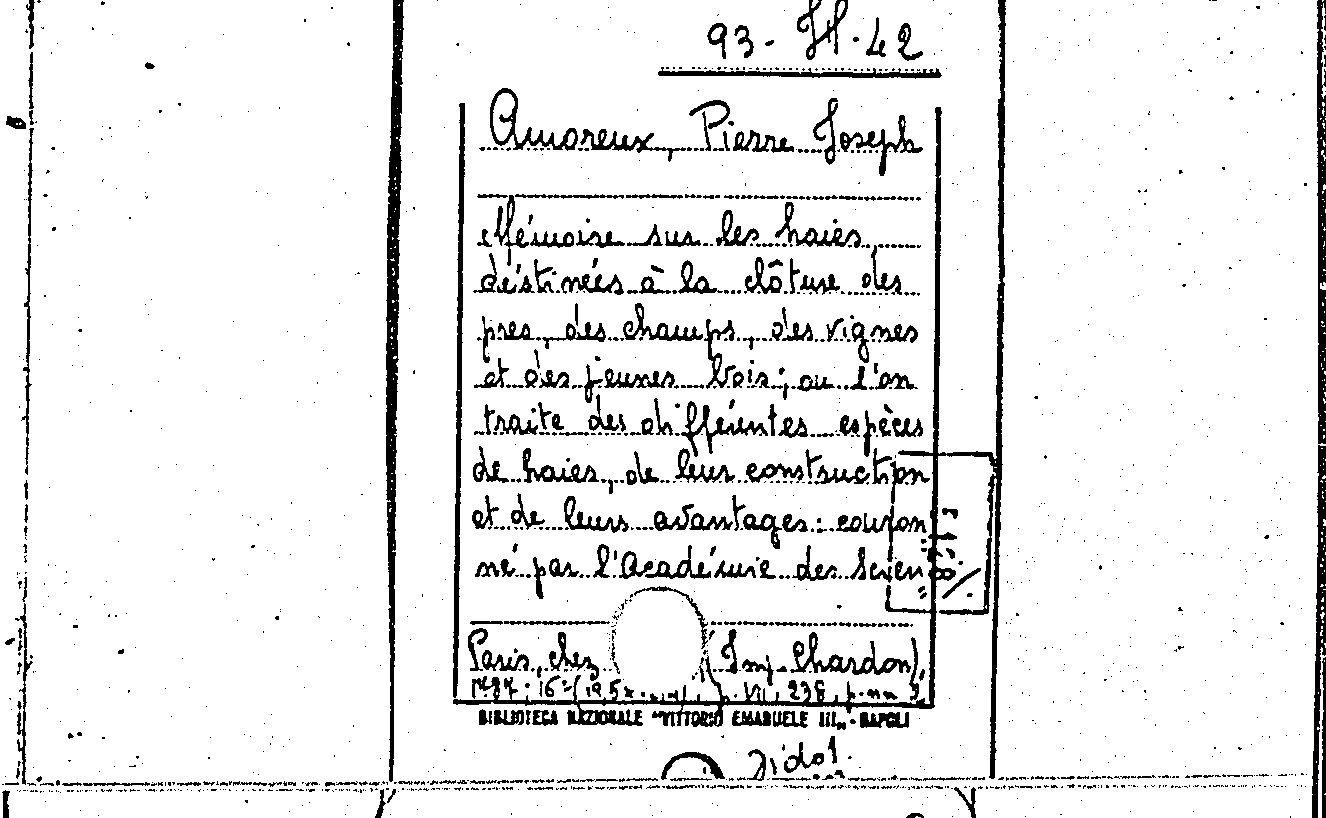 93- H.42
Amoreux, Pierre Joseph
Mémoire sur les haies
déstinées à la clôture des
pres, des champs, des vignes
et des jeunes bois; ou l'on
traite des différentes espèces
de haies, de leur construction
et de leurs avantages: couron
né par l'Académie des Scien
Paris, chez (Imp. Chardon),
1787; 16° (19,5x p. VII, 238, p. nn
BIBLIOTECA NAZIONALE "VITTORIO EMANUELE III„ - NAPOLI
Didot